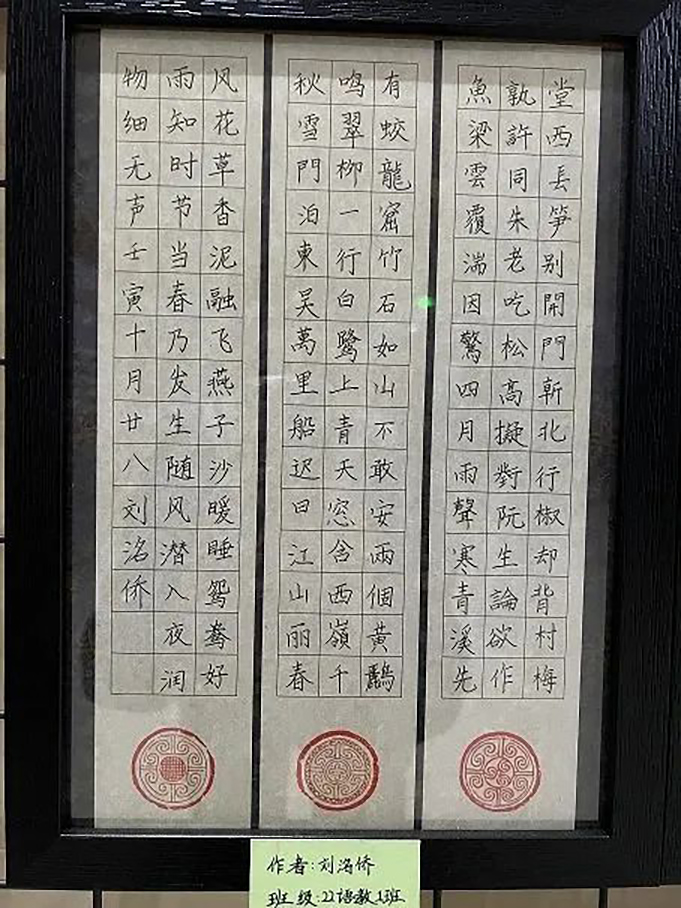 堂西長笋别開門斬北行椒却背村梅
孰許同朱老吃松高擬對阮生論欲作
魚梁雲覆湍因驚四月雨聲寒青溪先
有蛟龍窟竹石如山不敢安兩個黄鸝
鸣翠柳一行白鹭上青天窓含西嶺千
秋雪門泊東吴萬里船迟日江山丽春
风花草香泥融飞燕子沙暖睡鸳鸯好
雨知时节当春乃发生随风潜入夜润
物细无声壬寅十月廿八刘洺侨
作者:刘洺侨
班级:22语教1班